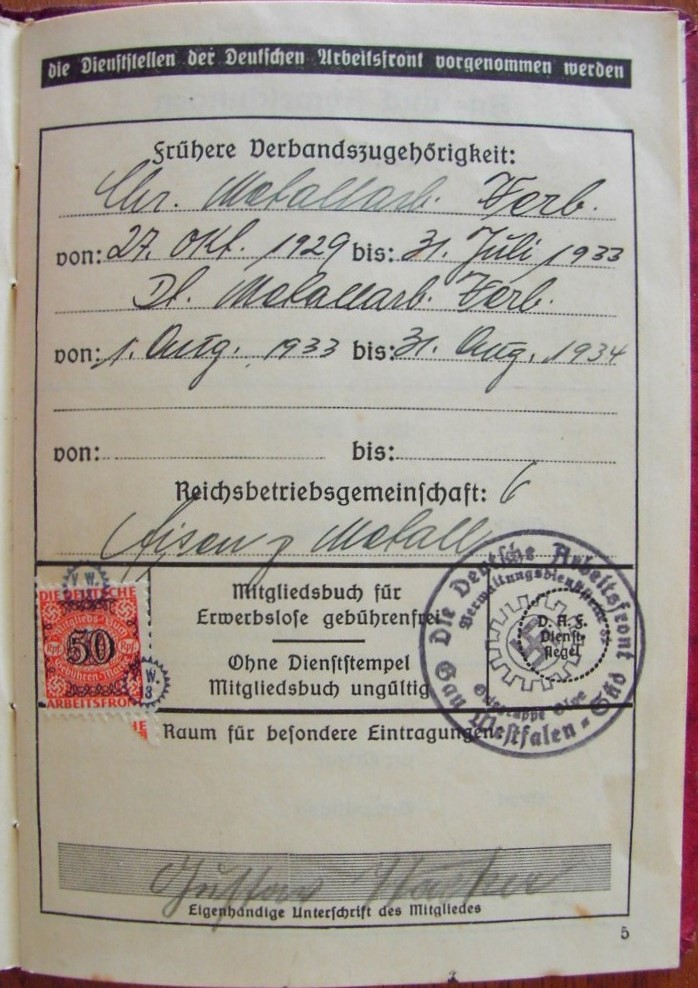 die Dienststellen der Deutschen Arbeitsfront vorgenommen werden
Frühere Verbandszugehörigkeit:
Chr. Metallarb. Verb.
von: 27. Okt. 1929 bis: 31. Juli 1933
Dt. Metallarb. Verb.
von: 1. Aug. 1933 bis: 31. Aug. 1934
von: bis:
Reichsbetriebsgemeinschaft: 6
Eisen Metall
Mitgliedsbuch für
Erwerbslose gebührenfrei
Ohne Dienststempel
Mitgliedsbuch ungültig
DIE DEUTSCHE
50
Rpf. Rpf.
ARBEITSFRONT
V.W.
W.
Die Deutsche Arbeitsfront
Gau Westfalen-Süd
Verwaltungsdienststelle
Ortsgruppe Olpe
D. A. F.
Dienst-
siegel
Raum für besondere Eintragungen:
Gustav
Eigenhändige Unterschrift des Mitgliedes
5